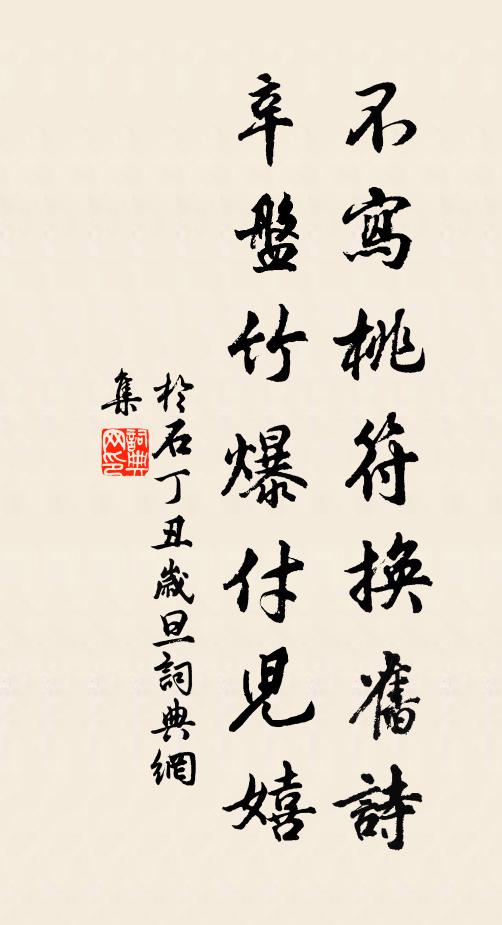 不寫桃符換舊詩
辛盤竹爆付兒嬉
於石丁丑歲旦詞典網
集
詞典網印